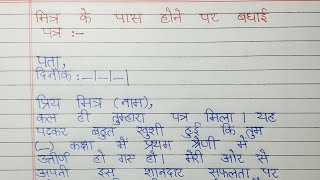 मित्र के पास होने पर बधाई
पत्र :-
पता,
दिनाँक :-।-।-।
प्रिय मित्र (नाम),
कल ही तुम्हारा पत्र मिला। यह
पढ़कर बहुत खुशी हुई कि तुम
(-) कक्षा में प्रथम श्रेणी में
उत्तीर्ण हो गए हो। मेरी ओर से
अपनी इस शानदार सफलता पर